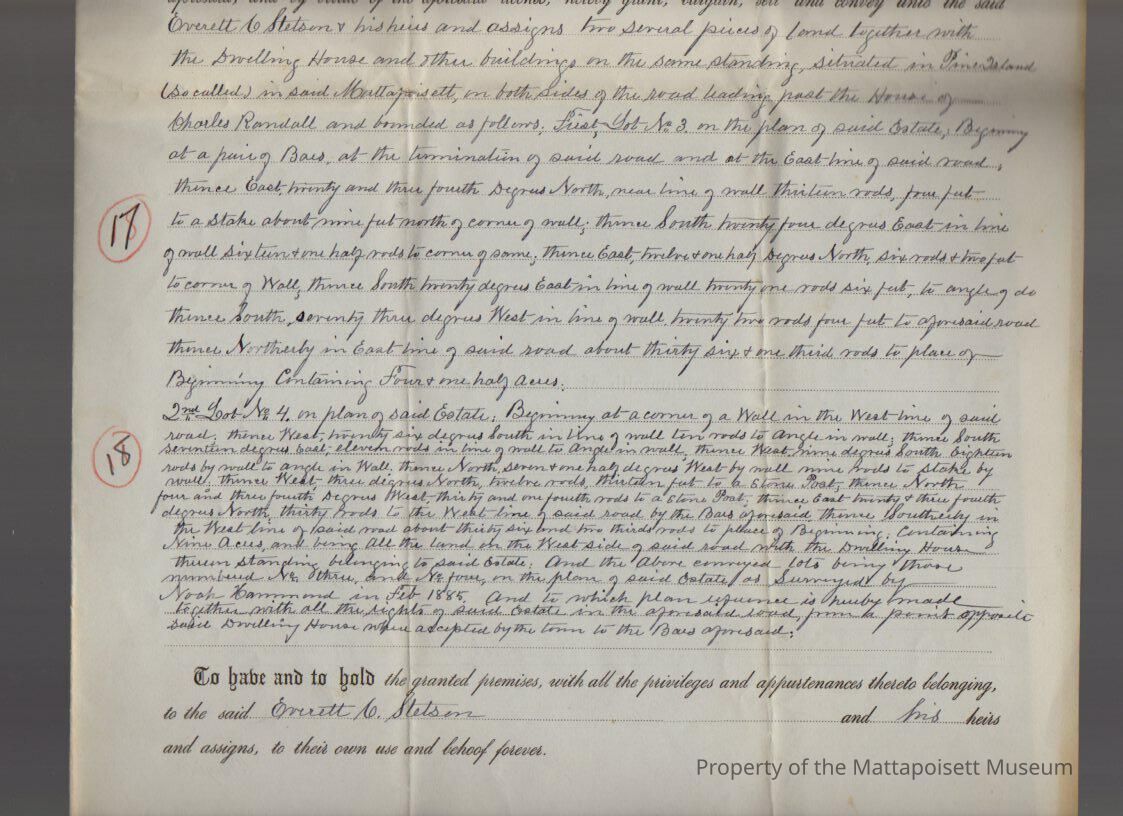 aforesaid, and by virtue of the aforesaid license, hereby grant, bargain, sell and convey unto the said
Everett C Stetson & his heirs and assigns two several pieces of land together with
the Dwelling House and other buildings on the same standing, situated in Pine Island
(so called) in said Mattapoisett, on both sides of the road leading past the House of
Charles Randall and bounded as follows: First, Lot No 3, on the plan of said Estate; Beginning
at a pair of Bars, at the termination of said road and at the East line of said road,
thence East, twenty and three fourth Degrees North, near line of wall thirteen rods, four feet
to a Stake about nine feet north of corner of wall; thence South twenty four degrees East in line
17
of wall sixteen & one half rods to corner of same, thence East, twelve & one half Degrees North, six rods & two feet
to corner of Wall, thence South twenty degrees East in line of wall twenty one rods six feet, to angle of do
thence South, seventy three degrees West in line of wall, twenty two rods four feet to aforesaid road
thence Northerly in East line of said road about thirty six & one third rods to place of
Beginning Containing Four & one half acres.
2nd Lot No 4. on plan of said Estate: Beginning at a corner of a Wall in the West line of said
road; thence West, twenty six degrees South in line of wall ten rods to Angle in wall; thence South
18
seventeen degrees East; eleven rods in line of wall to Angle in wall, thence West, nine degrees South Eighteen
rods by wall to angle in Wall, thence North, seven & one half degrees West by wall nine rods to Stake by
wall, thence West three degrees North, twelve rods, thirteen feet to a Stone Post, thence North
four and three fourth Degrees West, thirty and one fourth rods to a Stone Post, thence East twenty & three fourth
degrees North, thirty rods to the West line of said road by the Bars aforesaid, thence Southerly in
the West line of said road about thirty six and two thirds rods to place of Beginning: Containing
Nine Acres, and being all the land on the West side of said road with the Dwelling House
therein standing belonging to said Estate: And the above conveyed lots being those
numbered No. three, and No four, on the plan of said Estate as Surveyed by
Noah Hammond in Feb 1885, And to which plan reference is hereby made
together with all the rights of said Estate in the aforesaid road, from a point opposite
said Dwelling House when accepted by the town to the Bars aforesaid:
To have and to hold the granted premises, with all the privileges and appurtenances thereto belonging,
to the said Everett C. Stetson and his heirs
and assigns, to their own use and behoof forever.
Property of the Mattapoisett Museum